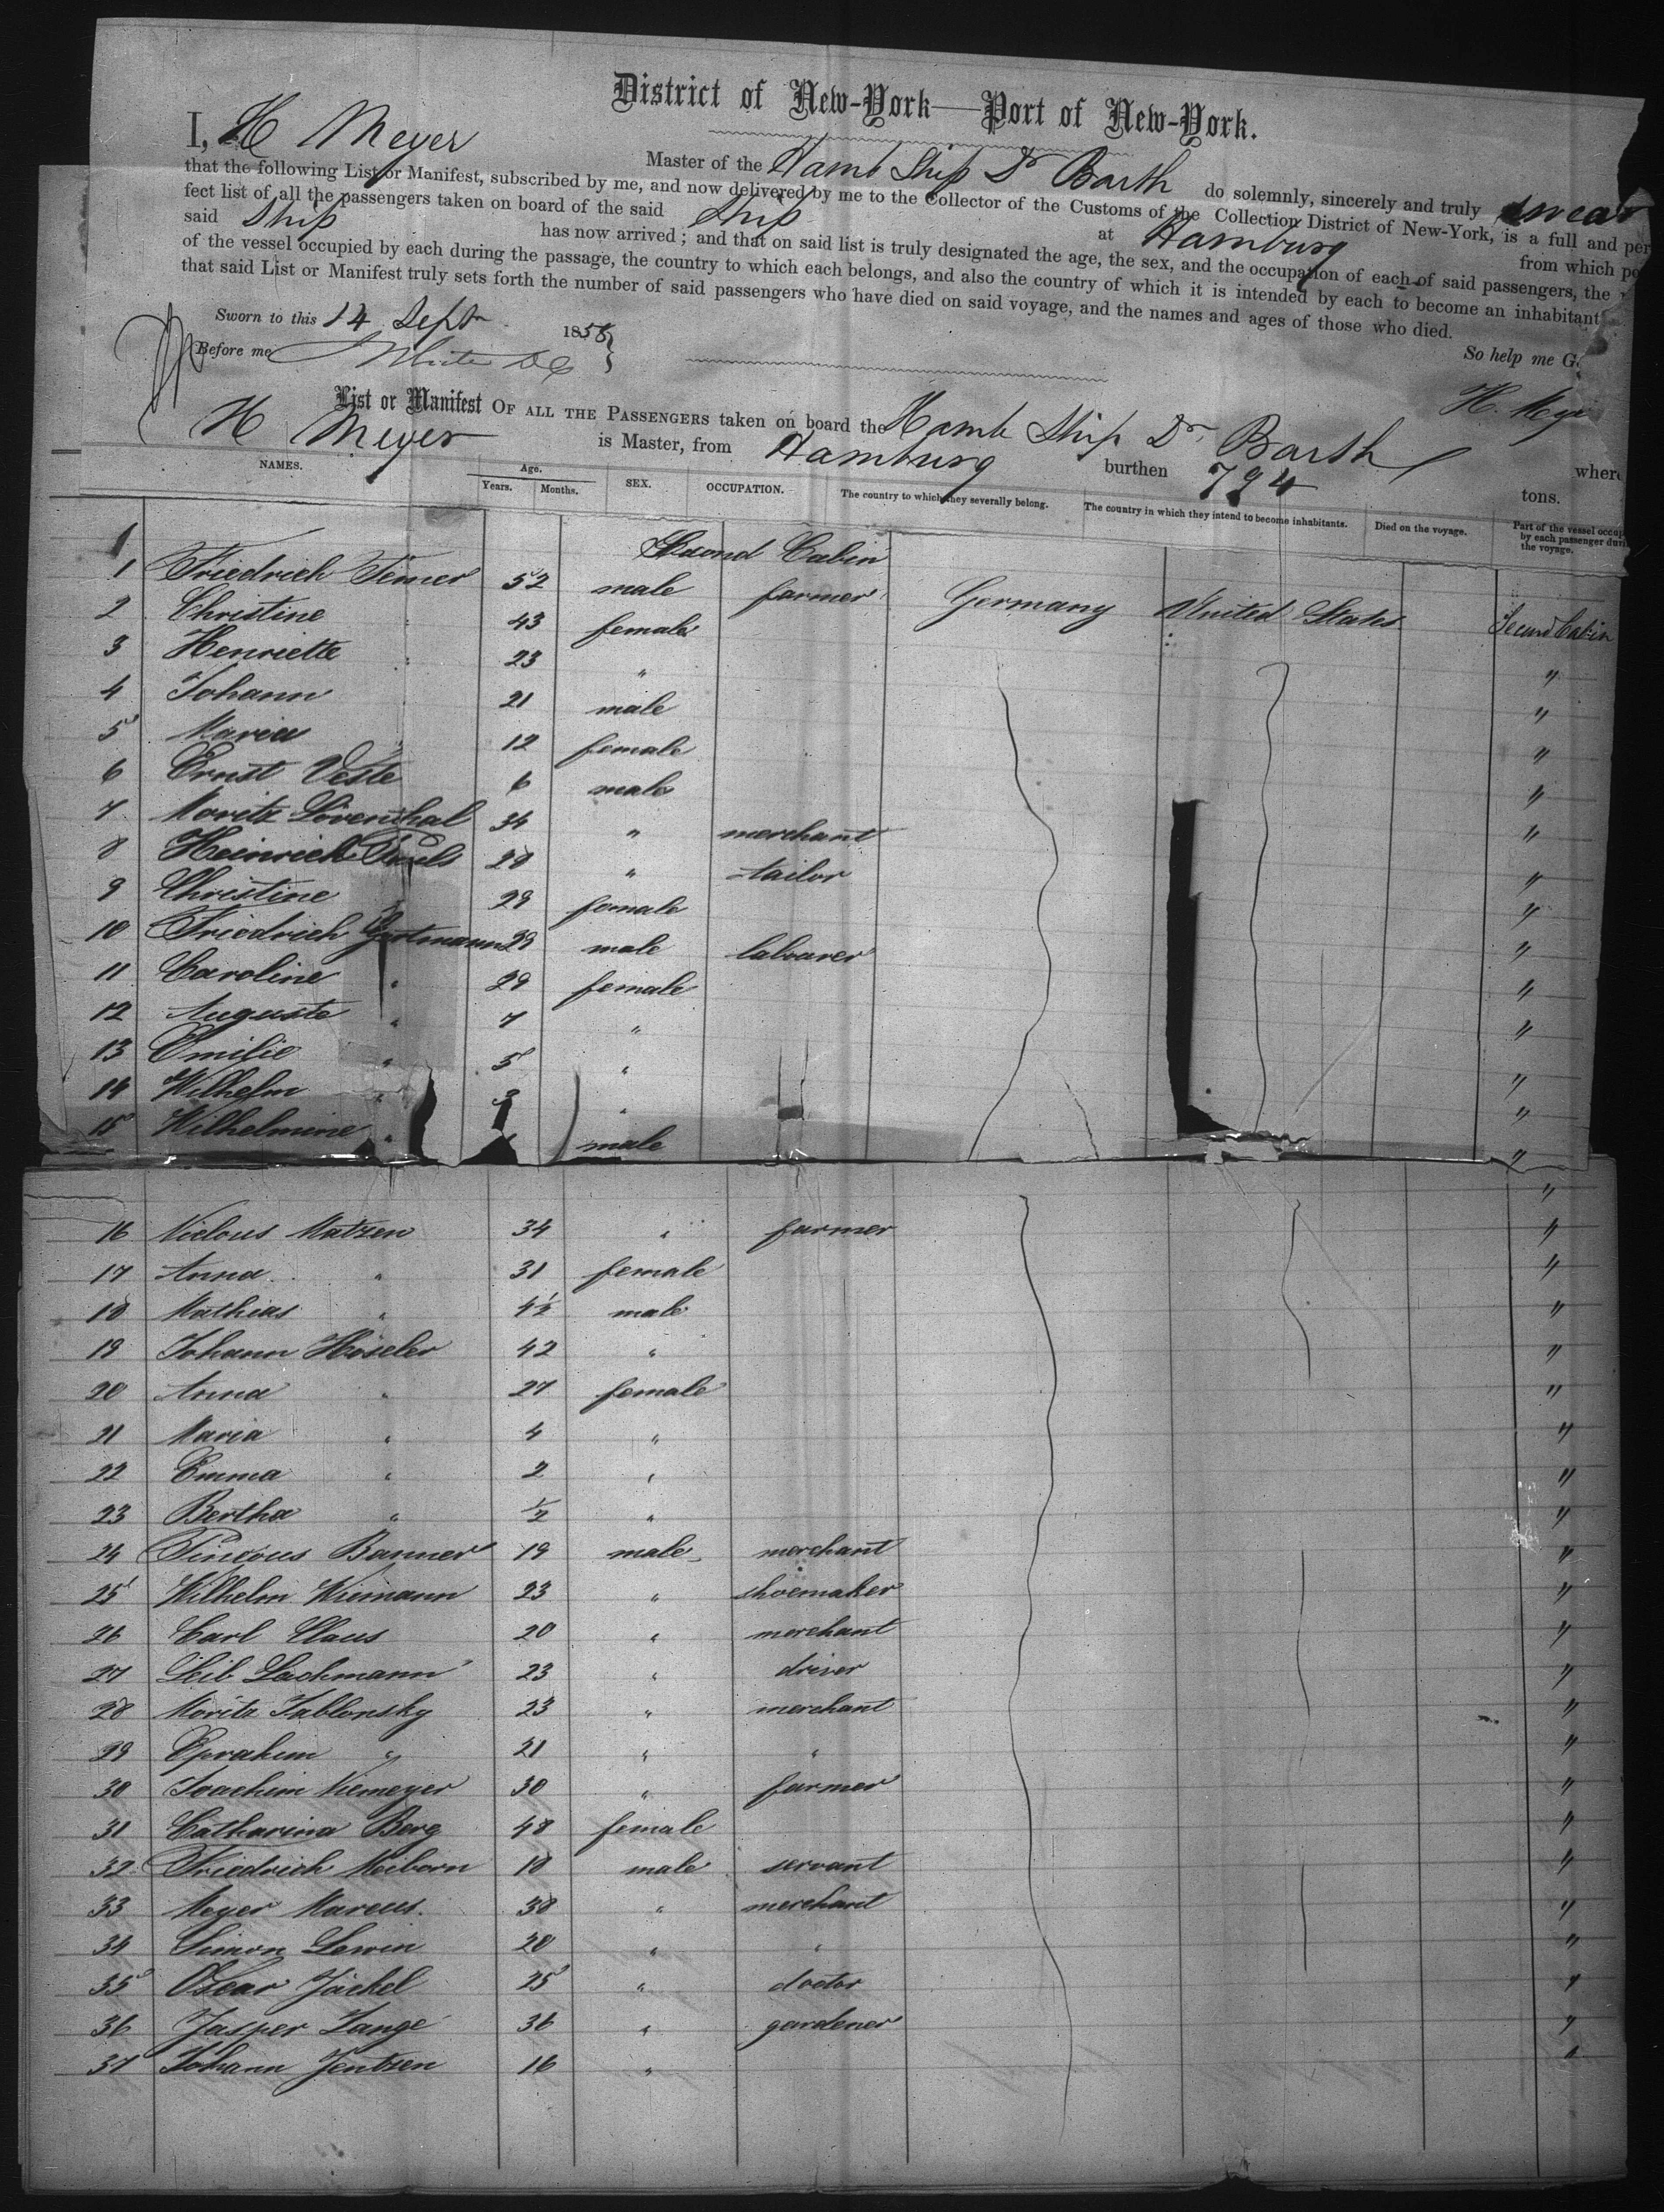 District of New-York—Port of New-York.
I, H Meyer Master of the Hamb Ship Dr Barth do solemnly, sincerely and truly swear
that the following List or Manifest, subscribed by me, and now delivered by me to the Collector of the Customs of the Collection District of New-York, is a full and per
fect list of all the passengers taken on board of the said Ship at Hamburg from which
said Ship has now arrived; and that on said list is truly designated the age, the sex, and the occupation of each of said passengers, the
of the vessel occupied by each during the passage, the country to which each belongs, and also the country of which it is intended by each to become an inhabitant
that said List or Manifest truly sets forth the number of said passengers who have died on said voyage, and the names and ages of those who died.
So help me G
Sworn to this 14 Sept 1858
Before me
H. Meye
List or Manifest OF ALL THE PASSENGERS taken on board the Hamb Ship Dr. Barth where
H Meyer is Master, from Hamburg burthen 794 tons.
NAMES. Age. Years. Months. SEX. OCCUPATION. The country to which they severally belong. The country in which they intend to become inhabitants. Died on the voyage. Part of the vessel occup by each passenger duri the voyage.
Second Cabin
1 Friedrich 52 male farmer Germany United States Second Cabin
2 Christine 43 female
3 Henriette 23 " "
4 Johann 21 male "
5 Maria 12 female "
6 Ernst Veste 6 male "
7 Moritz Löventhal 34 " merchant "
8 Heinrich 28 " tailor "
9 Christine 29 female "
10 Friedrich 29 male labourer "
11 Caroline " 29 female "
12 Auguste " 7 " "
13 Emilie " 5 " "
14 Wilhelm " " "
15 Wilhelmine " male "
16 Niclous Matzen 34 " farmer "
17 Anna " 31 female "
18 Mathias " 4½ male "
19 Johann Höseler 42 " "
20 Anna " 27 female "
21 Maria " 4 " "
22 Emma " 2 " "
23 Bertha " ½ " "
24 Pincous Banner 19 male merchant "
25 Wilhelm Wiemann 23 " shoemaker "
26 Carl Claus 20 " merchant "
27 Leib Lachmann 23 " driver "
28 Moritz Jablonsky 23 " merchant "
29 Eprahim " 21 " " "
30 Joachim Niemeyer 30 " farmer "
31 Catharina Berg 48 female "
32 Friedrich Meiborn 18 male servant "
33 Meyer Marcus. 38 " merchant "
34 Simon Lewin 20 " " "
35 Oscar Jäckel 25 " doctor "
36 Jasper Lange 36 " gardener "
37 Johann Jentzen 16 " "